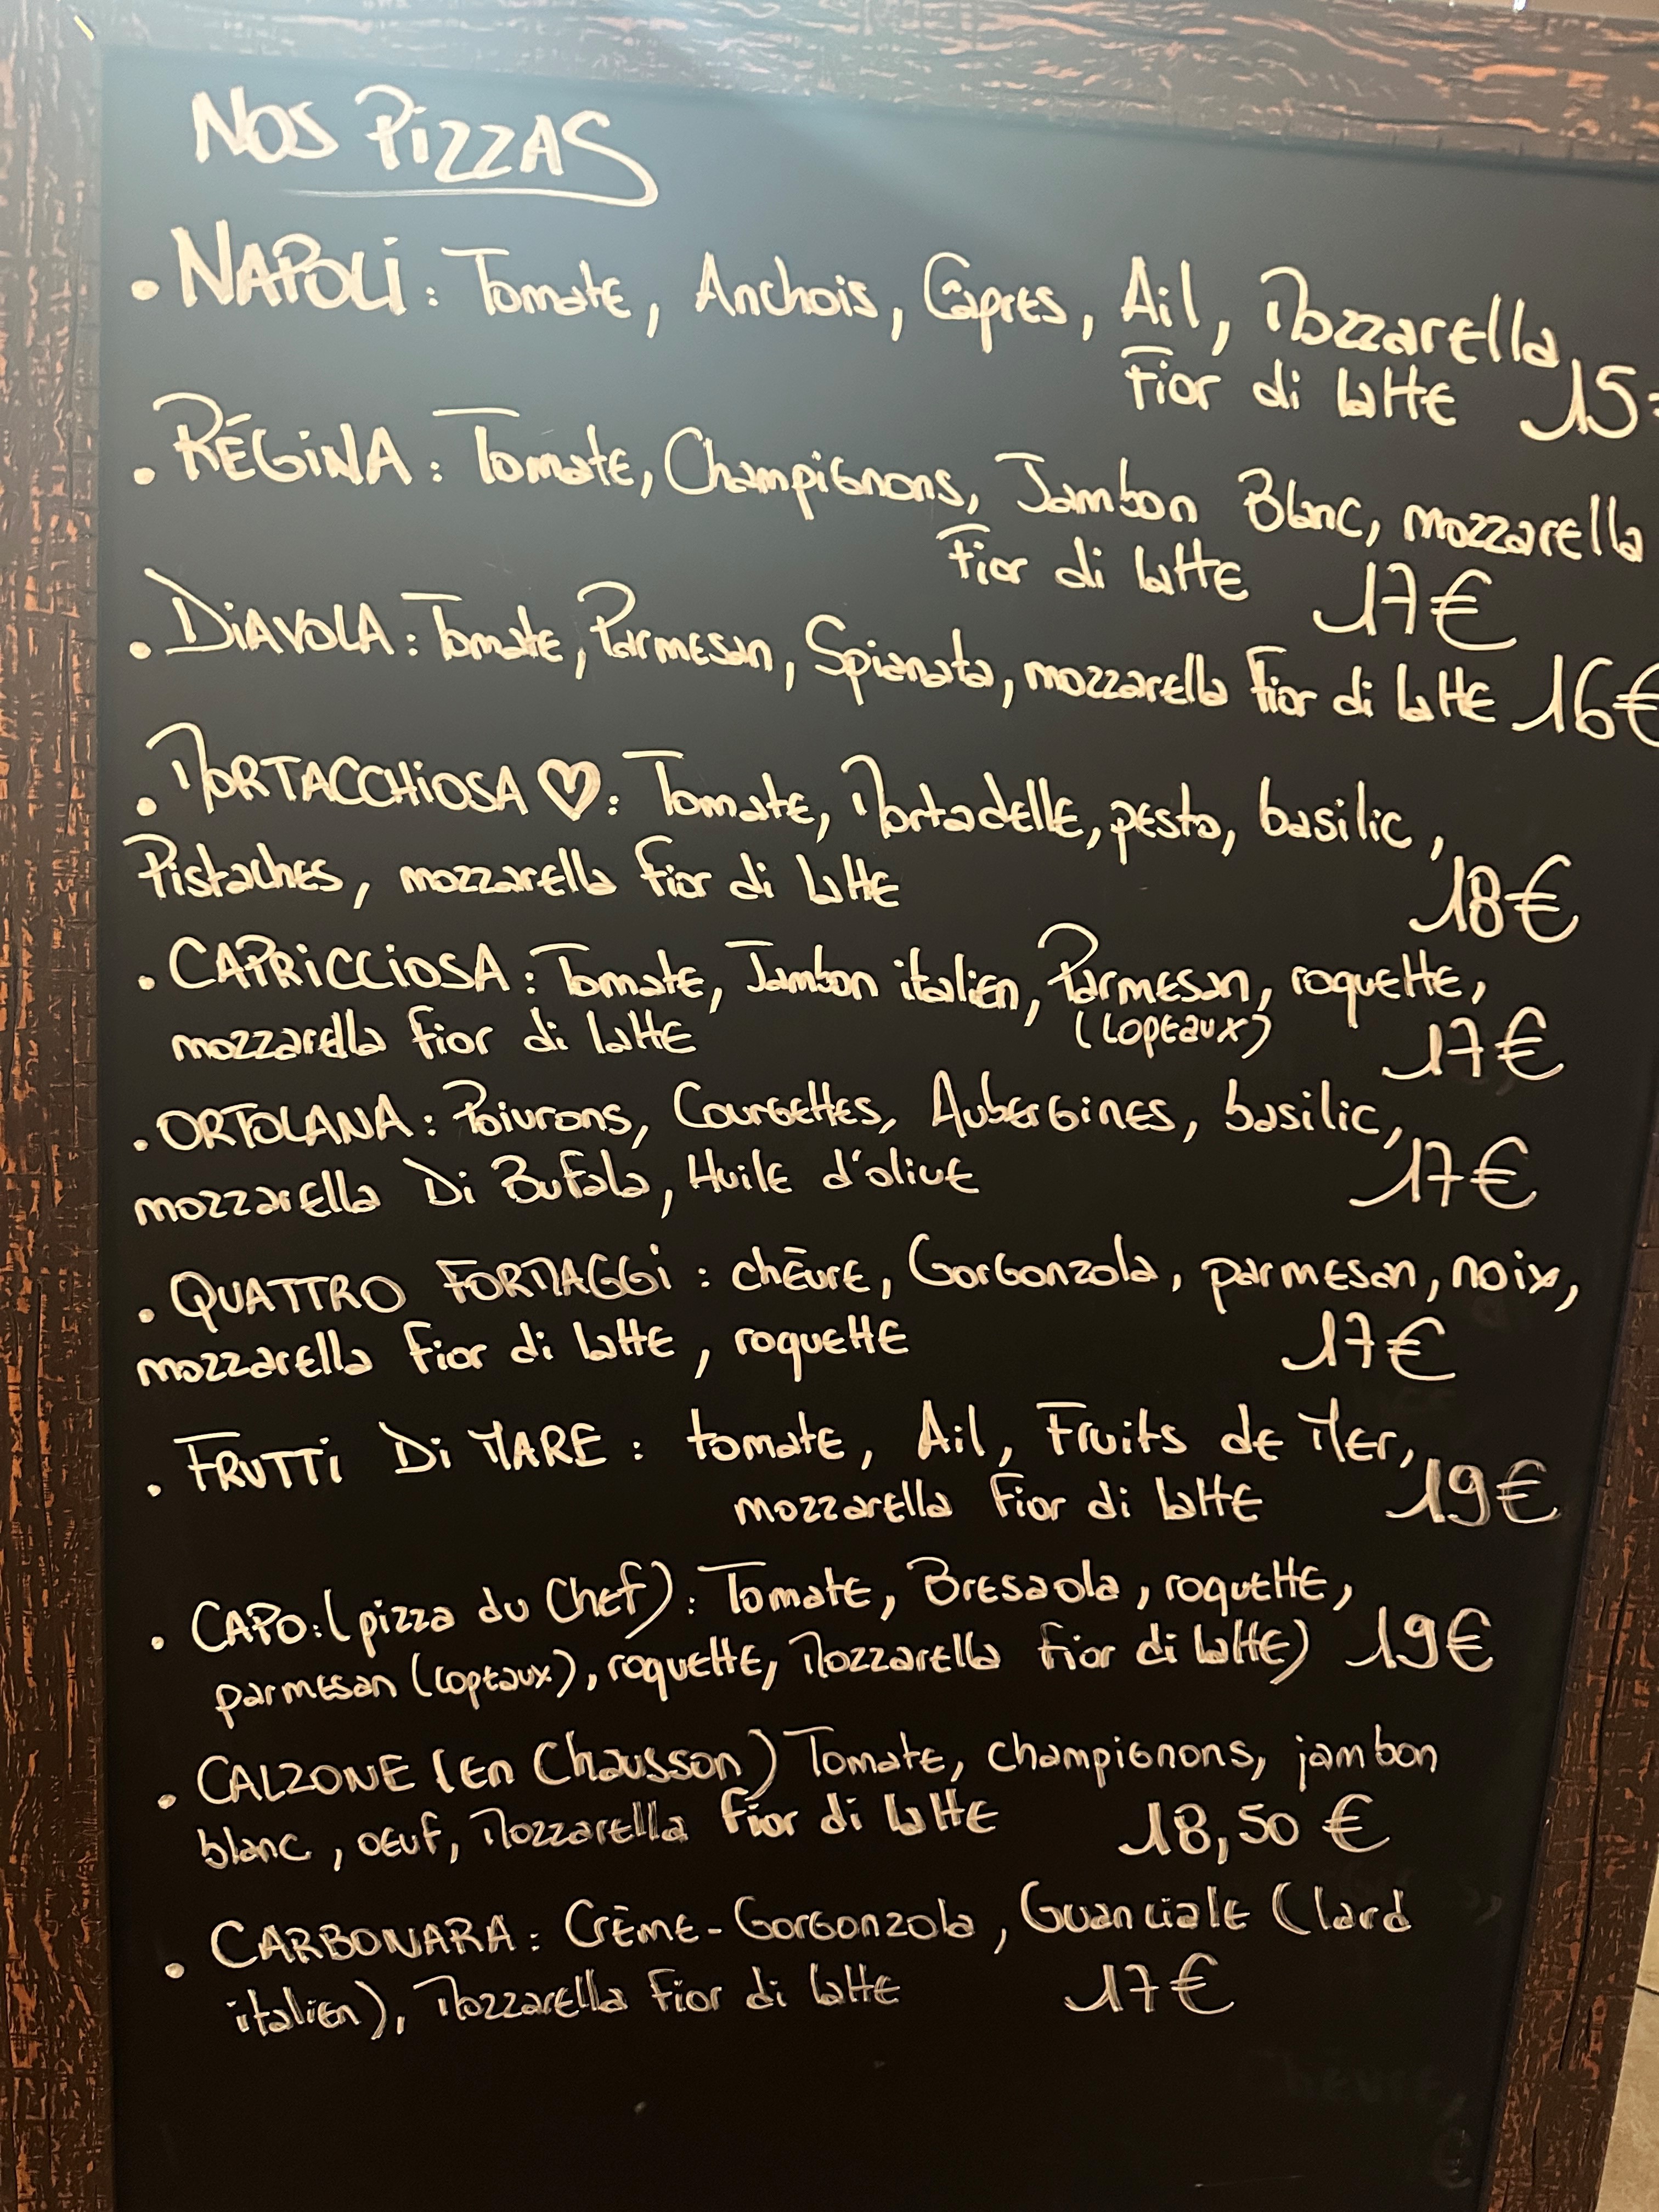 NOS PIZZAS
• NAPOLI : Tomate, Anchois, Câpres, Ail, Mozzarella
Fior di latte 15
• RÉGINA : Tomate, Champignons, Jambon Blanc, mozzarella
Fior di latte 17€
• DIAVOLA : Tomate, Parmesan, Spianata, mozzarella Fior di latte 16€
• MORTACCHIOSA ♡ : Tomate, Mortadelle, pesto, basilic,
Pistaches, mozzarella fior di latte 18€
• CAPRICCIOSA : Tomate, Jambon italien, Parmesan, roquette,
(copeaux)
mozzarella fior di latte 17€
• ORTOLANA : Poivrons, Courgettes, Aubergines, basilic,
mozzarella Di Bufala, Huile d'olive 17€
• QUATTRO FORMAGGI : chèvre, Gorgonzola, parmesan, noix,
mozzarella fior di latte, roquette 17€
• FRUTTI Di MARE : tomate, Ail, Fruits de Mer,
mozzarella Fior di latte 19€
• CAPO : (pizza du Chef) : Tomate, Bresaola, roquette,
parmesan (copeaux), roquette, Mozzarella fior di latte) 19€
• CALZONE (En Chausson) Tomate, champignons, jambon
blanc, oeuf, Mozzarella fior di latte 18,50 €
• CARBONARA : Crème - Gorgonzola, Guanciale (lard
italien), Mozzarella fior di latte 17€